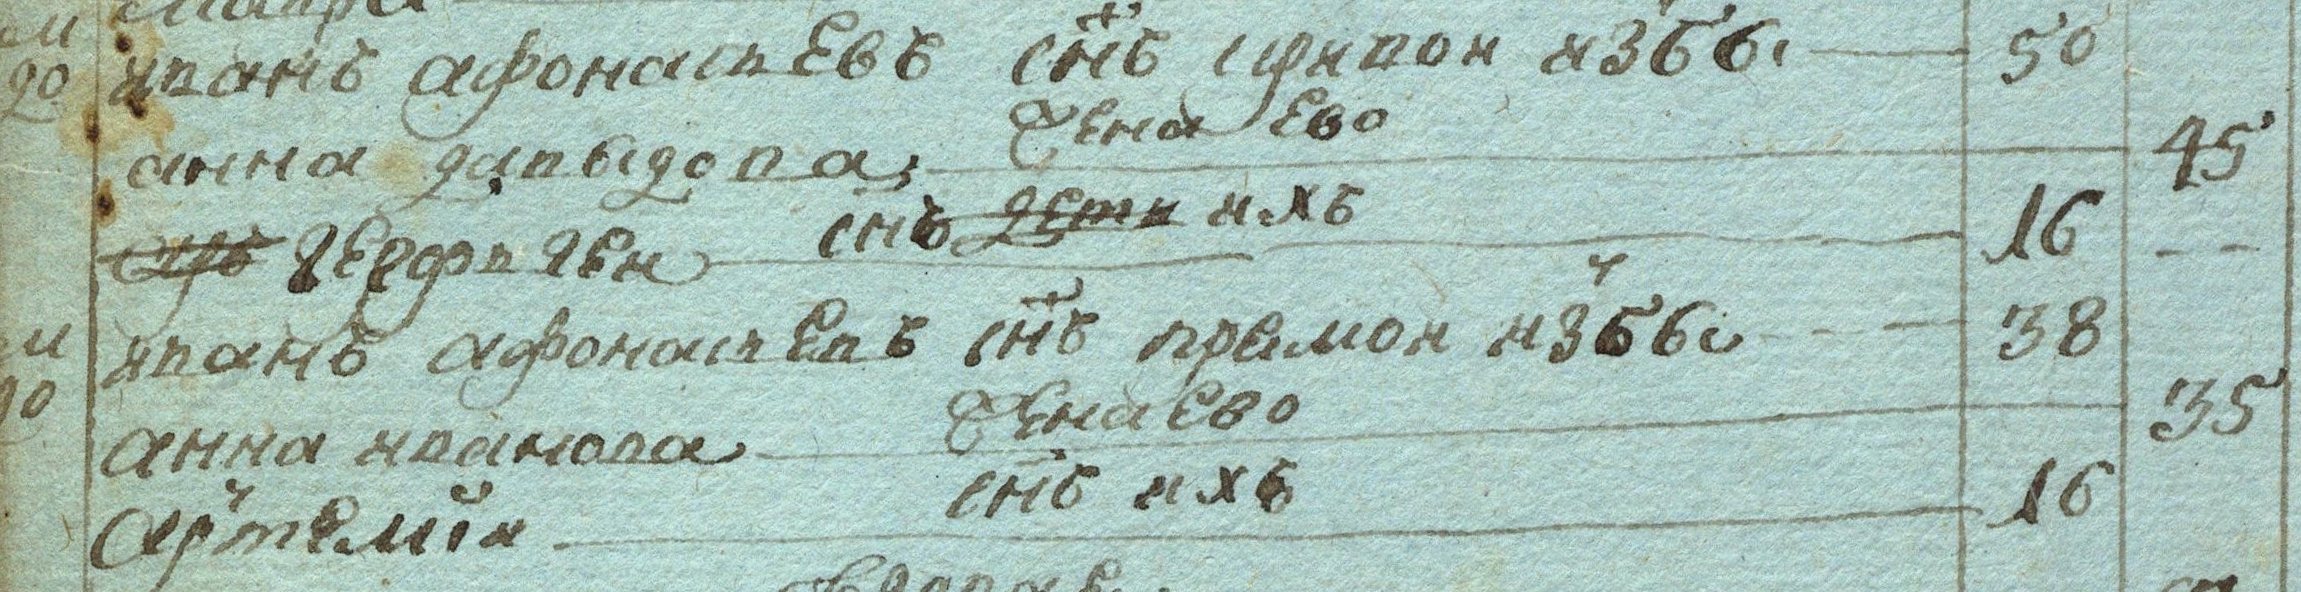 иванъ афонасьевъ снъ цривои изббı 50
жена ево
анна давыдова 45
снъ дети ихъ
16
иванъ афонасьевъ снъ премои изббı 38
жена ево
анна иванова 35
снъ ихъ
артемıи 16